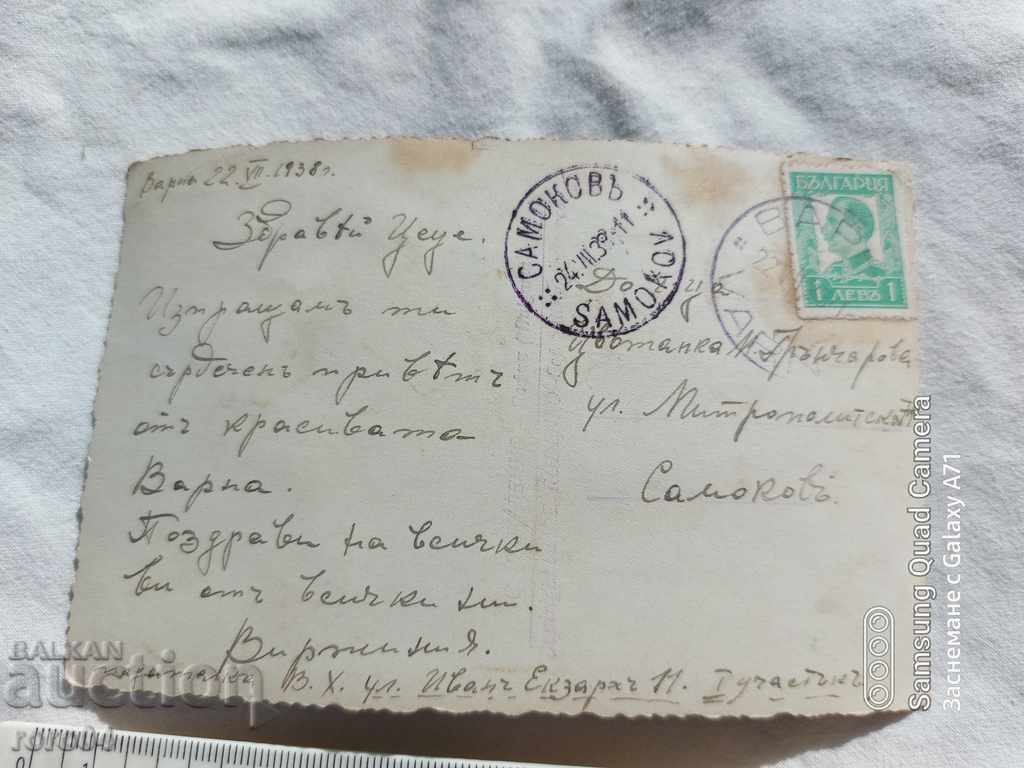 Варна 22.VII.1938 г.
Здравѣй Цеце.
Изпращамъ ти
сърдеченъ привѣтъ
отъ красивата
Варна.
Поздрави на всички
ви отъ всички ни.
Виржиния.
В. Х. ул. Иванъ Екзархъ 11. I участъкъ
САМОКОВЪ
SAMOKOV
БЪЛГАРИЯ
1 ЛЕВЪ 1
ВАР
До
Цвѣтанка М. Грънчарова
ул. Митрополитска
Самоковъ.
BALKAN
auction
Samsung Quad Camera
Заснемане с Galaxy A71
0 1